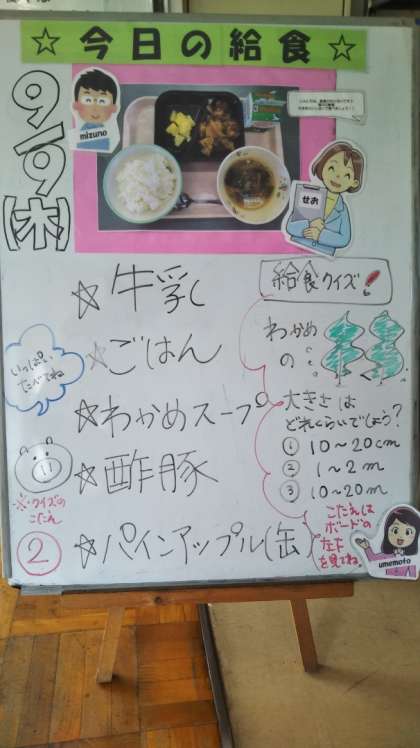 ☆今日の給食☆
9/9(木)
mizuno
せお
☆牛乳
☆ごはん
☆わかめスープ
☆酢豚
☆パインアップル(缶)
いっぱい
たべてね
※クイズの
こたえ
②
給食クイズ!
わかめ
の
大きさは
どれくらいでしょう?
① 10~20cm
② 1~2m
③ 10~20m
こたえは
ボードの
左下
を見てね。
umemoto